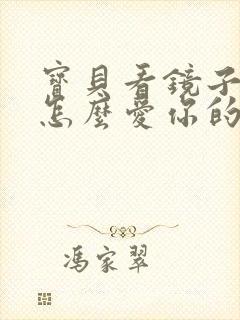 寶貝看鏡子
怎麼愛你的
馮家翠